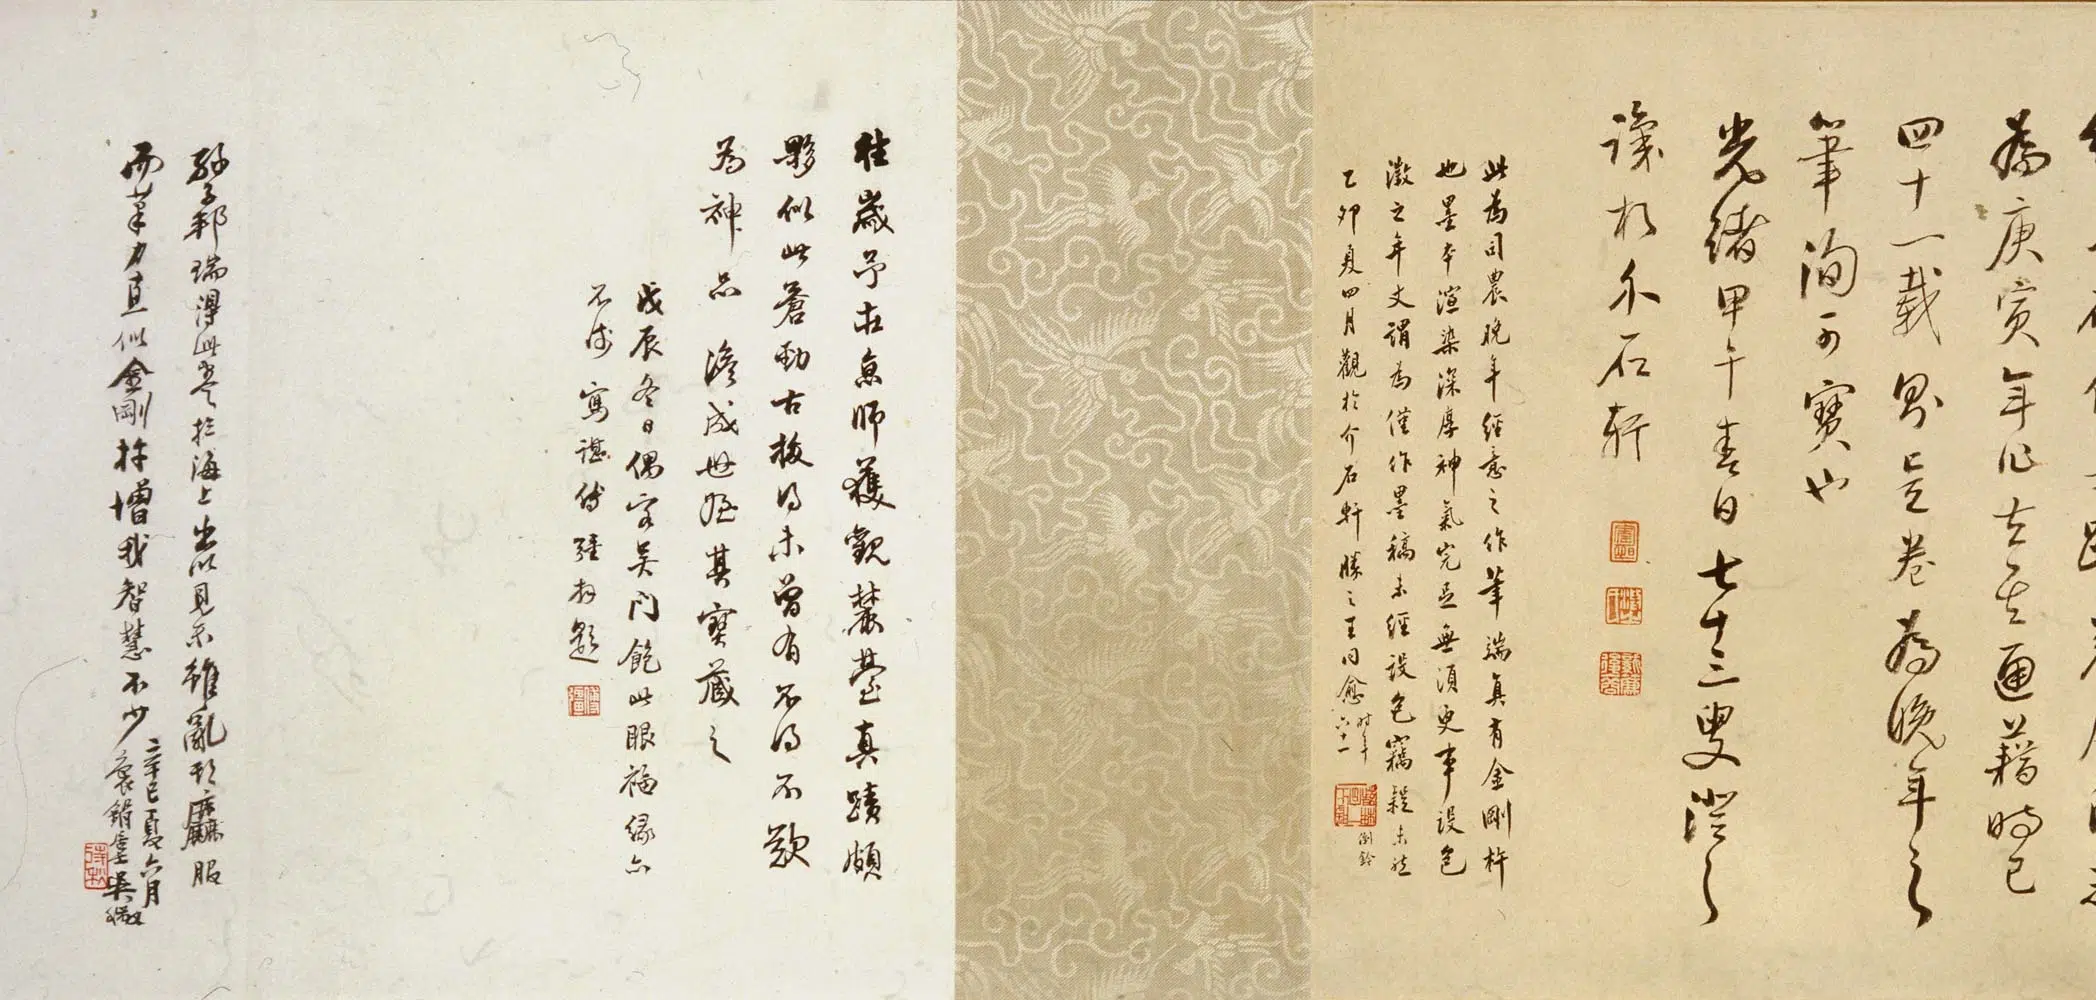 為庚寅年作去其通籍時已
四十一載則是卷為晚年之
筆洵可寶也
光緒甲午春日七十三叟澄之
識於介石軒
此為司農晚年經意之作筆端真有金剛杵
也墨本渲染深厚神氣完足無須更事設色
澂之年丈謂為僅作墨稿未經設色竊疑未然
乙卯夏四月觀於介石軒勝之王同愈
時年六十一
倒鈐
往歲予在京師獲觀麓臺真蹟頗
夥似此蒼勁古拔得未曾有不得不歎
為神品澹成世姪其寶藏之
戊辰冬日偶客吳門飽此眼福緣亦
不淺寫谌
題
邦瑞得此卷於海上出以見示雖亂頭麤服
而筆力直似金剛杵增我智慧不少
辛巳夏六月
吳徵